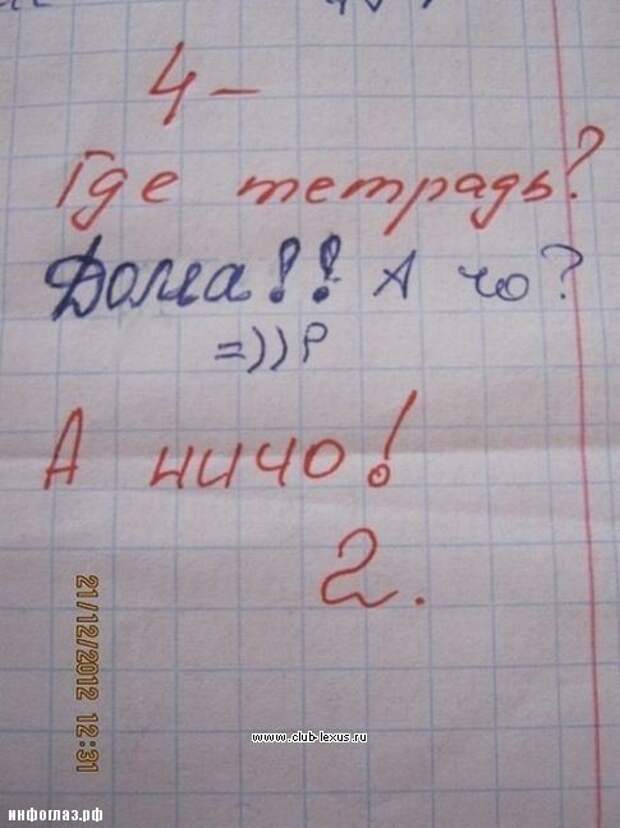 4 –
Где тетрадь?
Дома!! А чо?
=))P
А ничо!
2.
21/12/2012 12:31
www.club-lexus.ru
инфоглаз.рф